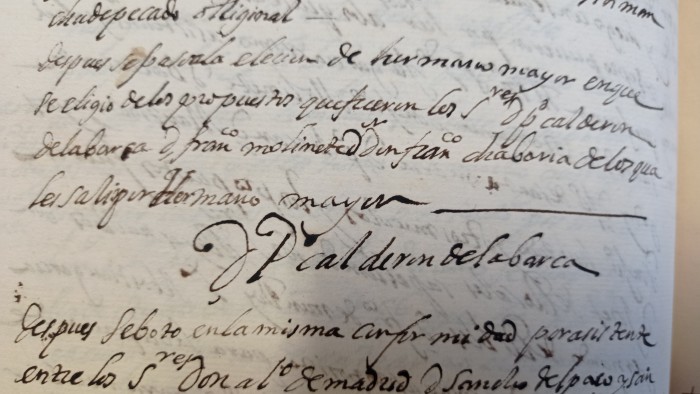 cha de pecado original
despues se paso a la elecion de hermano mayor en que
se eligio de los propuestos que fueron los Sres D Po calderon
de la barca D franco molinete D Dn franco chaboria de los qua
les salio por Hermano mayor
D Po calderon de la barca
despues se boto en la misma conformidad por asistente
entre los Sres Don alo de madrid D sancho del